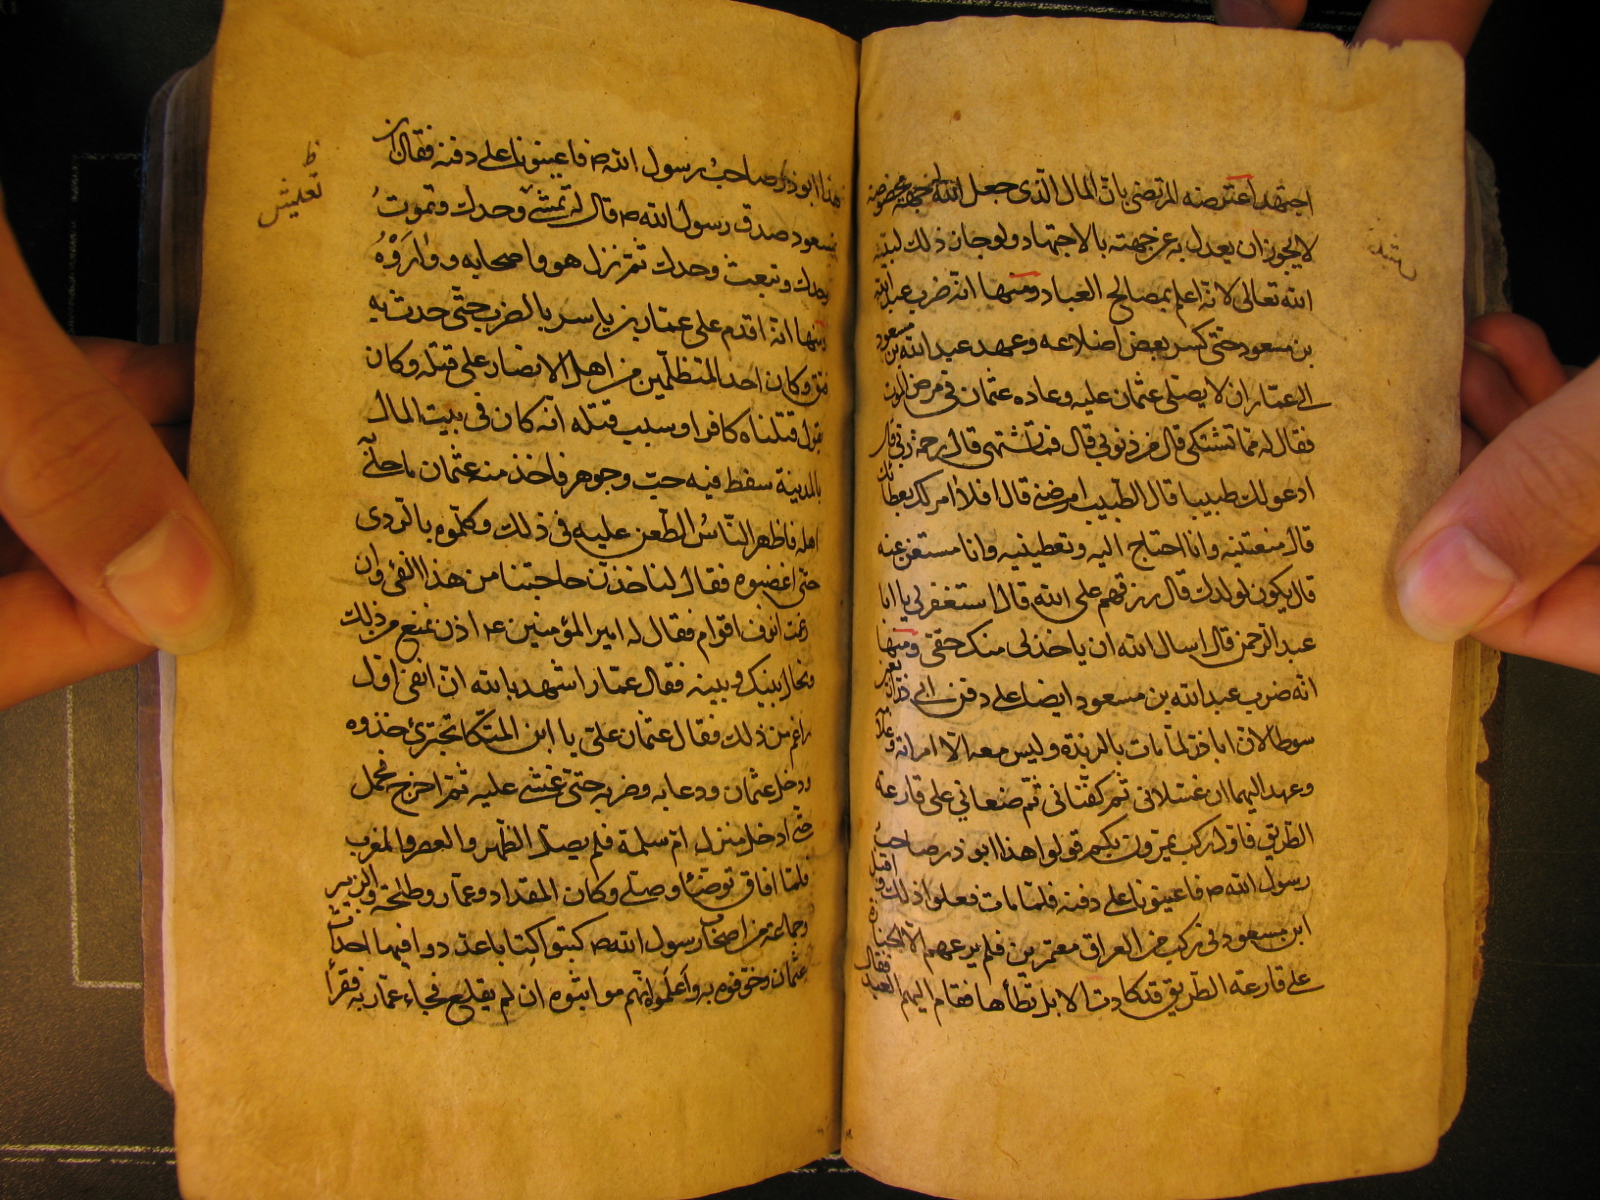 اجتهد اعترضه المرتضى بان المال الذى جعل الله له جهة مخصوصة
لا يجوز ان يعدل به عن جهته بالاجتهاد ولو جاز ذلك لبينه
الله تعالى لانه اعلم بمصالح العباد ومنها انه ضرب عبد الله
بن مسعود حتى كسر بعض اضلاعه وعهد عبد الله بن مسعود
الى عمار ان لا يصلى عثمان عليه وعاده عثمان فى مرض الموت
فقال له مما تشتكى قال من ذنوبى قال فما تشتهى قال رحمة ربى قال
ادعو لك طبيبا قال الطبيب امرضنى قال افلا امر لك بعطائك
قال منعتنيه وانا احتاج اليه وتعطينيه وانا مستغن عنه
قال يكون لولدك قال رزقهم على الله قال استغفر لى يا ابا
عبد الرحمن قال اسال الله ان ياخذ لى منك حقى ومنها
انه ضرب عبد الله بن مسعود ايضا على دفن ابى ذر اربعين
سوطا لان اباذر لما مات بالربذة وليس معه الا امراته وغلامه
وعهد اليهما ان غسلانى ثم كفنانى ثم ضعانى على قارعة
الطريق فاول ركب يمرون بكم قولوا هذا ابو ذر صاحب
رسول الله ص فاعينونا على دفنه فلما مات فعلوا ذلك واقبل
ابن مسعود فى ركب من العراق معتمرين فلم يرعهم الا الجنازة
على قارعة الطريق قد كادت الابل تطأها فقام اليهم العبد فقال
هذا ابو ذر صاحب رسول الله ص فاعينونا على دفنه فقال ابن
مسعود صدق رسول الله ص قال له تمشى وحدك وتموت
وحدك وتبعث وحدك ثم نزل هو واصحابه وواروه
ومنها انه اقدم على عمار بن ياسر بالضرب حتى حدث به
فتق وكان احد المتظلمين من اهل الامصار على قتله وكان
يقول قتلناه كافرا وسبب قتله انه كان فى بيت المال
بالمدينة سفط فيه حب وجوهر فاخذ منه عثمان ما حلى
اهله فاظهر الناس الطعن عليه فى ذلك وكلموه بالردى
حتى اغضبوه فقال لناخذن حاجتنا من هذا الفئ وان
رغمت انوف اقوام فقال له امير المؤمنين ع اذن تمنع من ذلك
ويحال بينك وبينه فقال عمار اشهد بالله ان انفى اول
راغم من ذلك فقال عثمان على يا ابن المتكا تجترئ خذوه
ودخل عثمان ودعا به وضربه حتى غشى عليه ثم اخرج فحمل
حتى ادخل منزل ام سلمة فلم يصل الظهر والعصر والمغرب
فلما افاق توضأ وصلى وكان المقداد وعمار وطلحة والزبير
وجماعة من اصحاب رسول الله ص كتبوا كتابا عددوا فيها احداث
عثمان وخوفوه به واعلموه انهم مواثبوه ان لم يقلع فجاء عمار به فقرأ
ظ
تعليش